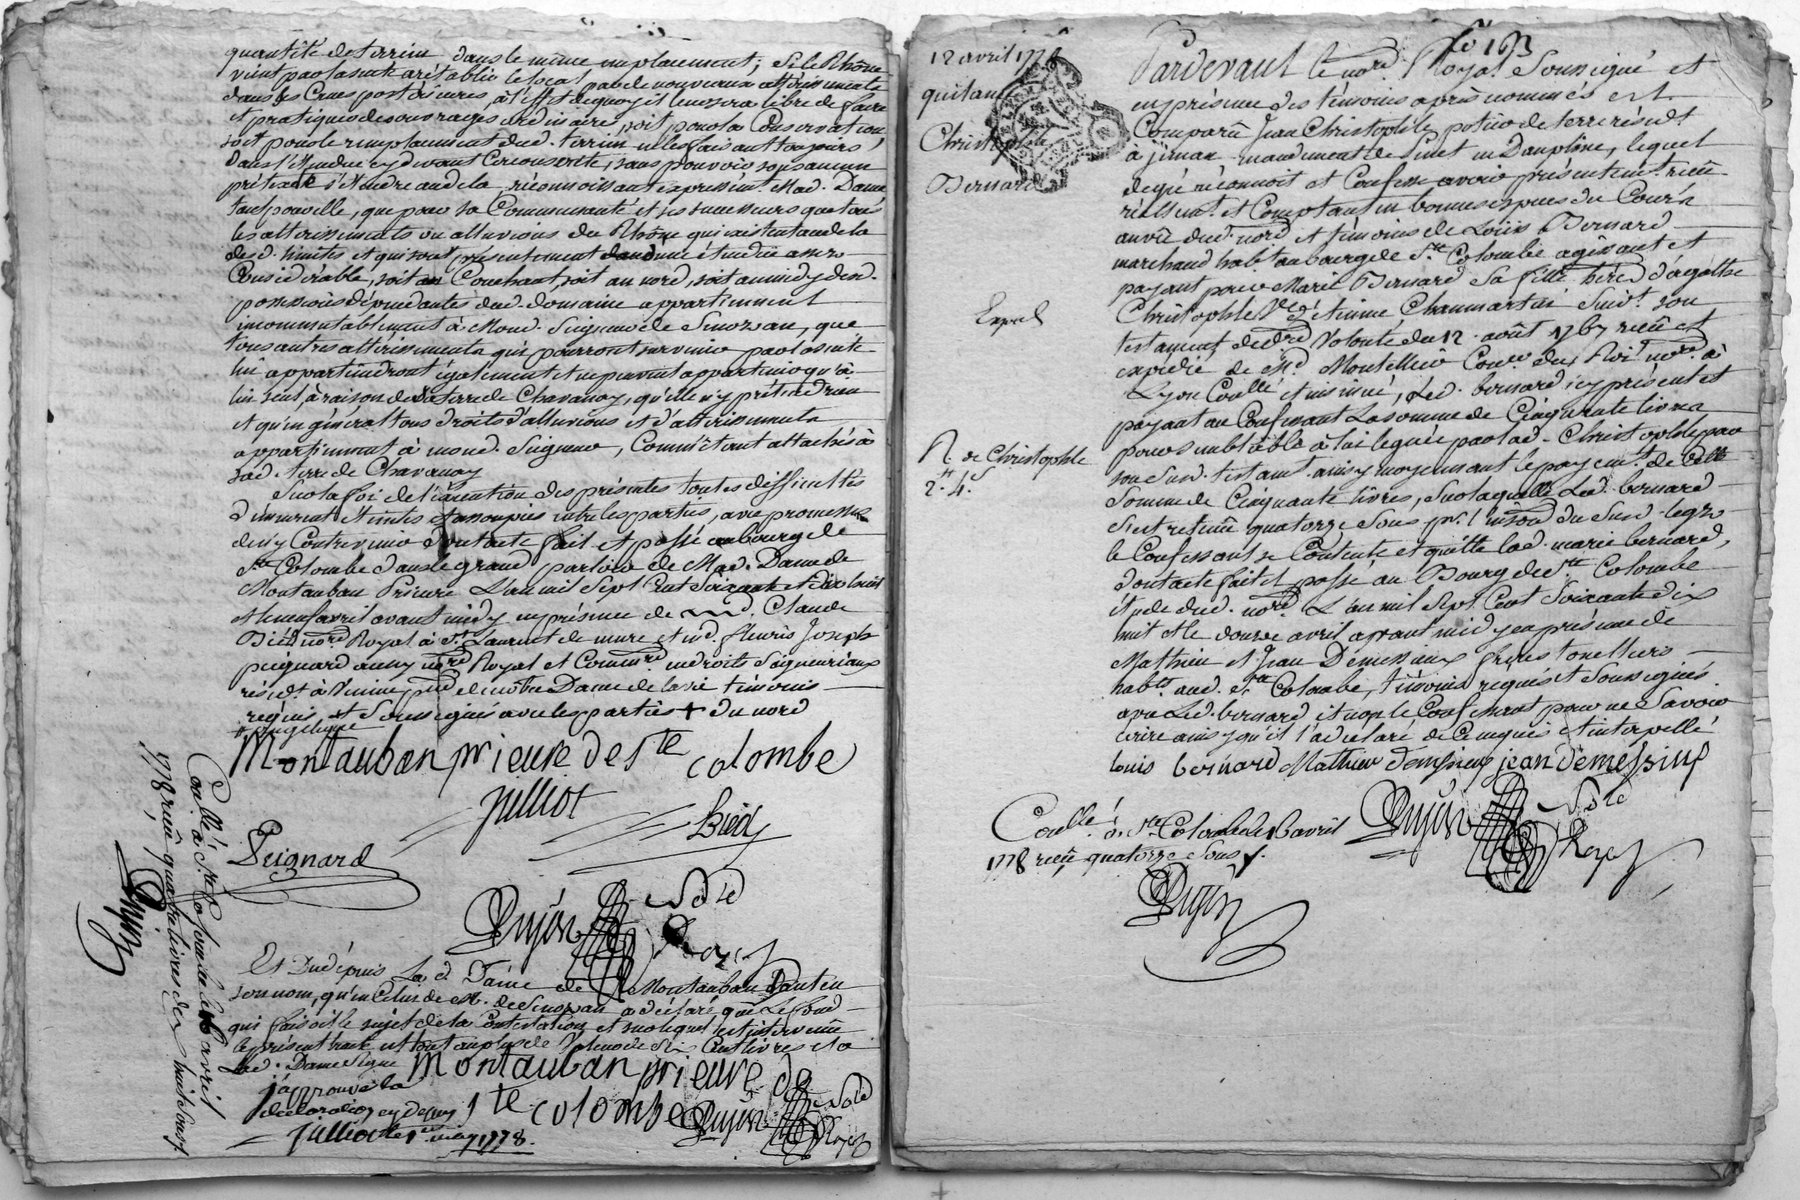 quantité de terrein dans le même emplacement; si le Rhône
vient par la suite a rétablir le local par de nouveaux attérissements
dans les Crues postérieures, à l'effet dequoy il leur sera libre de faire
et pratiquer des ouvrages ordinaires, soit pour la Conservation,
soit pour le remplacement dud. terrein en les faisant toujours
dans l'étendue cy devant Circonscrite, sans pouvoir sous aucun
prétexte s'étendre audela, réconnoissant expressémt. Mad. Dame
tant pour elle, que pour sa Communauté et ses successeurs que tous
les attérissements ou alluvions du Rhône qui existent audela
desd. limites et qui sont présentement d'une étendue assez
Considérable, soit au Couchant, soit au nord, soit au midy desd.
possessions dépendantes dud. domaine appartiennent
incommutablement à Mond. Seigneur de Senozan, que
tous autres attérissements qui pourront survenir par la suite
lui appartiendront également et ne peuvent appartenir qu'à
lui seul, à raison de sa terre de Chavanay, qu'elle n'y prétend rien
et qu'en général tous droits d'alluvions et d'attérissements
appartiennent à mond. Seigneur, Comme étant attachés à
sad. terre de Chavanay
Sous la foi de l'exécution des présentes toutes difficultés
demeurent éteintes et assoupies entre les parties, avec promesse
de n'y Contrevenir dont acte fait et passé au bourg de
Ste Colombe dans le grand parloir de Mad. Dame de
Montauban Prieure L'an mil Sept Cent Soixante et dix huit
et le neuf avril avant midy en présence de Claude
Bied nore Royal à St. Laurent de mure et de fleuris Joseph
peignard aussy nore Royal et Commre. en droits Seigneuriaux
résidt à Vienne psse de notre Dame de la vie témoins
requis et Soussignés avec les parties + du nord
+ angelique
Montauban prieure de ste colombe
Julliot
Bied
Peignard
Dujon Nore
Royal
Et Du dépuis La d Dame de Montauban tant en
son nom, qu'en Celui de M. de Senozan a déclaré que Le fond
qui faisoit le sujet de la Contestation et sur lequel est intervenu
le présent traité est tout au plus de Valeur de Six Cent livres et a
Lad. Dame Signé Montauban prieure de
ste colombe
j'approuve la
déclaration cy dessus
Julliot le 1er may 1778.
Dujon Nore
Royal
Conllé à Ste Colombe le avril
1778 reçu quatre livres dix huit sous
Dujon
fo 193
12 avril 1778
quitance
Christophle
Bernard
Expéd
R de Christophle
2tt 4s
Pardevant le nore Royal Soussigné et
en présence des témoins après nommés est
Comparu Jean Christophle potier de terre résidt
à jonan mandement de Pinet en Dauphiné, lequel
de gré réconnoit et Confesse avoir présentemt. reçu
réellemt. et Comptant en bonnes espèces du Cours
au vû dud. nore et témoins de Loüis Bernard
marchand habt. au bourg de Ste Colombe agissant, et
payant pour Marie Bernard sa fille hérede d'agathe
Christophle Ve d'étienne Chanmartin Suivt. son
testament de dre Volonté du 12 août 1767 reçu et
expédié de Me Montellier Coner du Roi nore à
Lyon Conllé et insinué, Led. bernard icy présent et
payant au Confessant La somme de Cinquante livres
pour semblable à lui leguée par lad. Christophle par
son Susd. testamt. ainsy moyennant le payemt. de cette
Somme de Cinquante livres, sur laquelle Led. bernard
s'est retenu quatorze sous pr. l'insdn du Susd. legs
le Confessant se Contente et quitte lad. marie bernard,
dont acte fait et passé au Bourg de Ste Colombe
étude dud. nore L'an mil Sept Cent Soixante dix
huit et le douze avril avant midy en présence de
Mathieu et Jean Demessieux freres tonelliers
habts aud. Ste Colombe, témoins requis et Soussignés
avec Led. bernard et non le Confessant pour ne Savoir
écrire ainsy qu'il l'a déclaré de Ce enquis et interpellé
louis bernard Mathieu Demessieux jean demessius
Dujon Nore
Royal
Conllé à Ste Colombe le 16 avril
1778 reçu quatorze sous
Dujon